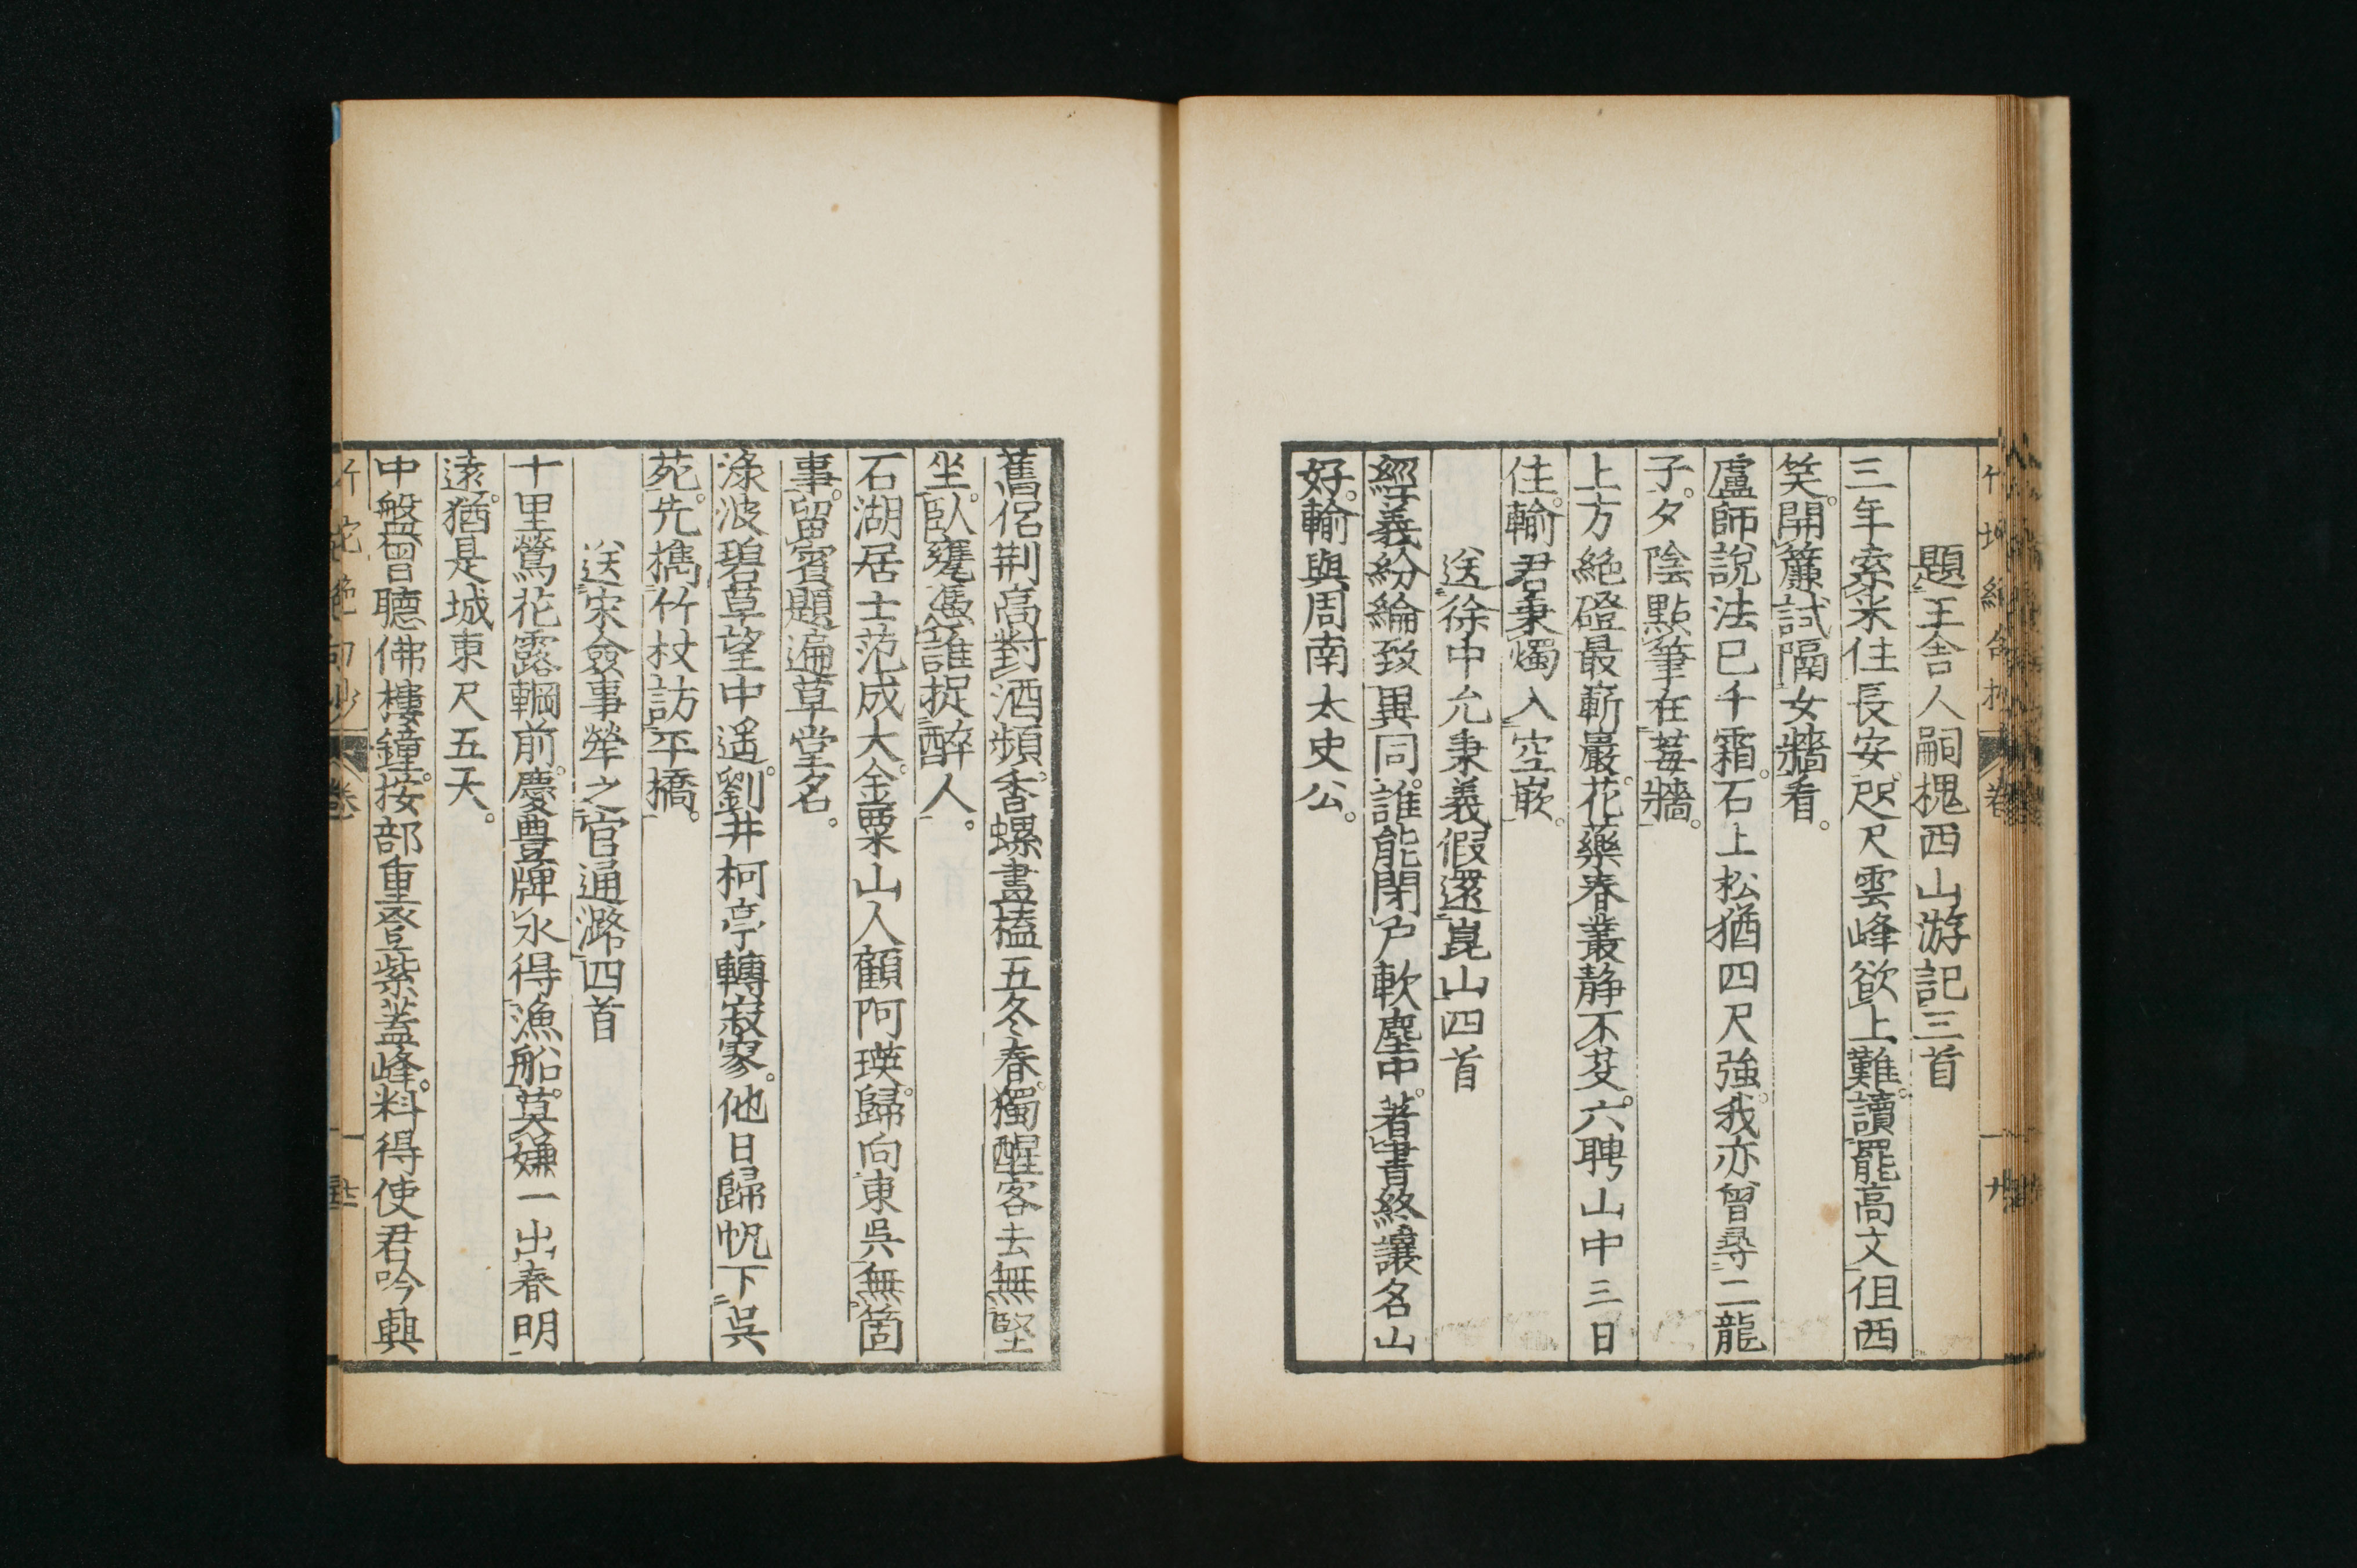 題王舍人嗣槐西山游記三首
三年索米住長安。咫尺雲峰欲上難。讀罷高文但西
笑。開簾試隔女牆看。
盧師說法已千霜。石上松猶四尺強。我亦曾尋二龍
子。夕陰點筆在莓牆。
上方絕磴最嶄巖。花藥春叢靜不芟。六聘山中三日
住。輸君秉燭入空嵌。
送徐中允秉義假還崑山四首
經義紛綸致異同。誰能閉戶軟塵中。著書終讓名山
好。輸與周南太史公。
舊侶荆高對酒頻。香螺畫榼五冬春。獨醒客去無堅
坐。臥甕憑誰捉醉人。
石湖居士范成大。金粟山人顧阿瑛。歸向東吳無箇
事。留賓題遍草堂名。
淥波碧草望中遥。劉井柯亭轉寂寥。他日歸帆下吳
苑。先攜竹杖訪平橋。
送宋僉事犖之官通潞四首
十里鶯花露輞前。慶豊牌永得漁船。莫嫌一出春明
遠。猶是城東尺五天。
中盤曾聽佛樓鐘。按部重登紫蓋峰。料得使君吟興
竹垞絶句抄
卷